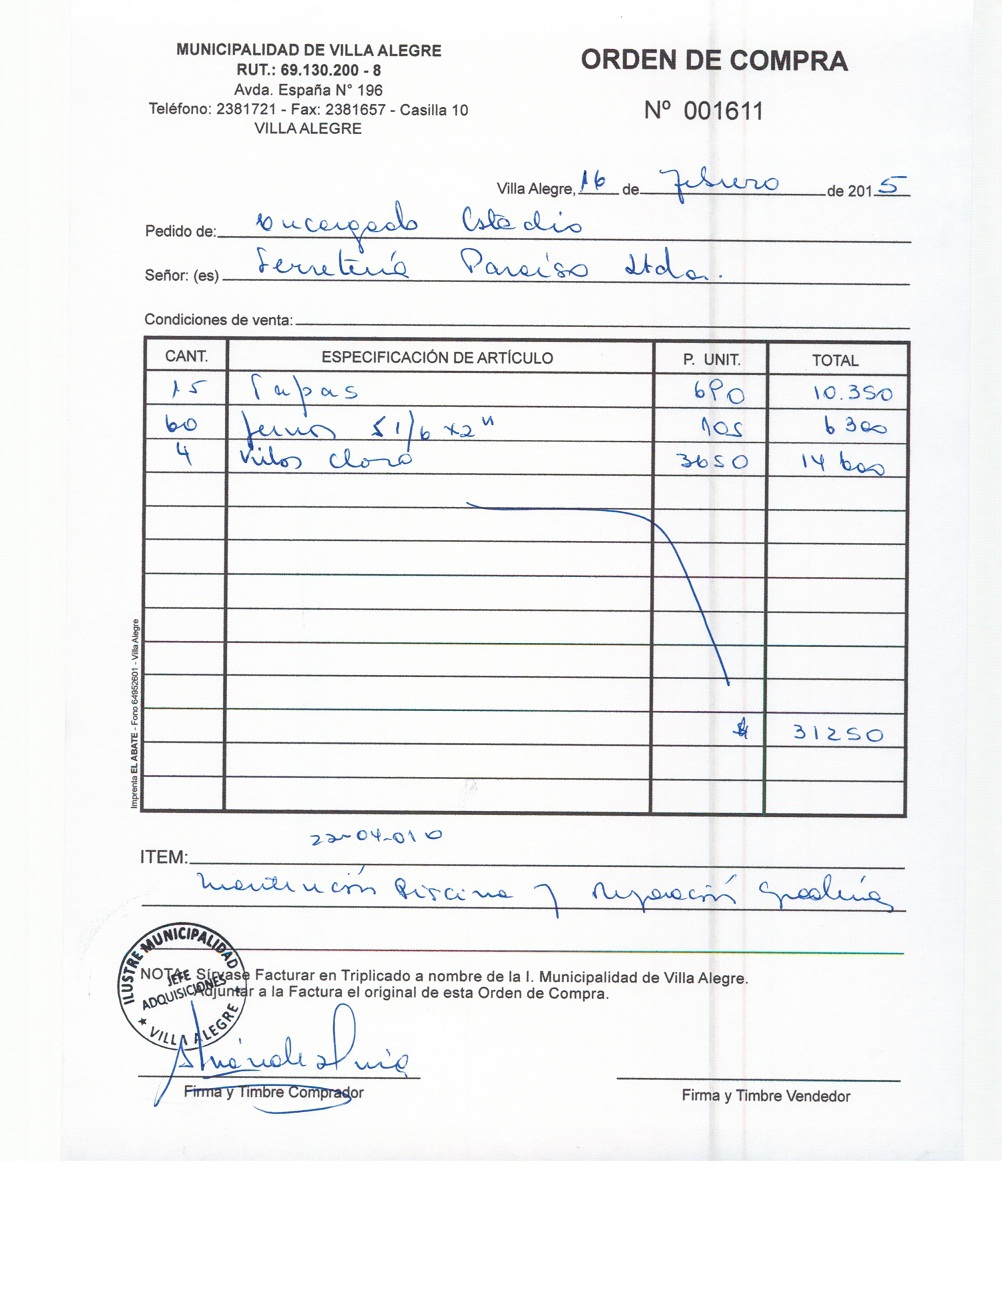 MUNICIPALIDAD DE VILLA ALEGRE
RUT.: 69.130.200 - 8
Avda. España N° 196
Teléfono: 2381721 - Fax: 2381657 - Casilla 10
VILLA ALEGRE
ORDEN DE COMPRA
Nº 001611
Villa Alegre, 16 de Febrero de 2015
Pedido de: Encargado Estadio
Señor: (es) Ferretería Paraiso Ltda.
Condiciones de venta:
CANT. ESPECIFICACIÓN DE ARTÍCULO P. UNIT. TOTAL
15 Tapas 690 10.350
60 51/6 x2" 105 6300
4 Kilos cloro 3650 14600
$ 31250
Imprenta EL ABATE - Fono 64952601 - Villa Alegre
22-04-010
ITEM:
Mantención Piscina y Reparación Graderías
ILUSTRE MUNICIPALIDAD
JEFE
ADQUISICIONES
* VILLA ALEGRE *
NOTA: Sírvase Facturar en Triplicado a nombre de la I. Municipalidad de Villa Alegre.
Adjuntar a la Factura el original de esta Orden de Compra.
Firma y Timbre Comprador
Firma y Timbre Vendedor